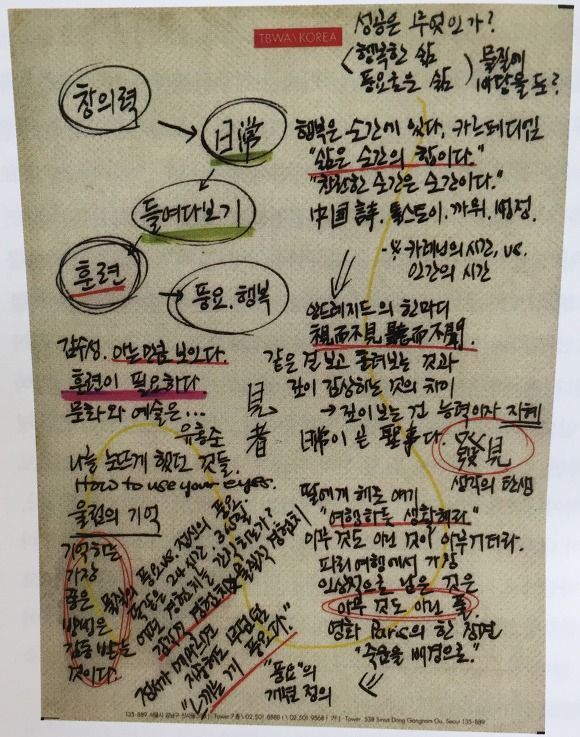 TBWA\KOREA
성공은 무엇인가?
행복한 삶
풍요로운 삶
물질에
바탕을 둔?
창의력
日常
들여다보기
훈련
풍요. 행복
행복은 순간에 있다. 카르페디엠
"삶은 순간의 합이다."
"찬란한 순간은 순간이다."
中国 詩, 톨스토이, 까뮈, 법정.
카레닌의 시간, vs.
인간의 시간
앙드레지드의 한마디
視而不見 聽而不聞
같은 걸 보고 흘려보는 것과
깊이 감상하는 것의 차이
→ 깊이 보는 건 능력이자 지혜
日常이 곧 聖事다.
發見
생각의 탄생
감수성. 아는만큼 보인다.
훈련이 필요하다
문화와 예술은...
유홍준
見者
나를 눈뜨게 했던 것들.
How to use your eyes.
울림의 기억
기억하는
가장
좋은
방법은
감동 받는
것이다.
물질의 풍요 vs 정신의 풍요.
똑같은 24시간
어떤 경험치를 갖기 하는가?
"느끼는 게 풍요다."
"풍요"의
개념 정의
딸에게 해준 얘기
"여행하듯 생활해라"
아무 것도 아닌 것이 아무거더라.
파리여행에서 가장
인상적으로 남은 것은
아무 것도 아닌 풀
영화 Paris의 한 장면
"죽음을 배경으로."
135-889 서울시 강남구 신사동 Tower 7층 02.501 8888 Tower 538 Sinsa Dong Gangnam Gu, Seoul 135-889